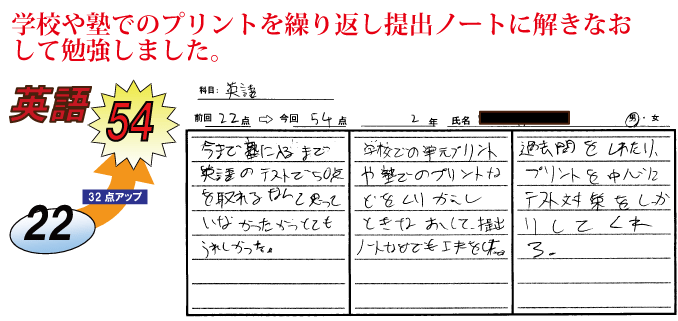 学校や塾でのプリントを繰り返し提出ノートに解きなお
して勉強しました。
英語
54
32点アップ
22
科目: 英語
前回 22点 ⇨ 今回 54点 2年 氏名 男・女
今まで塾に入るまで
英語のテストで50点
を取れるなんて思って
いなかったからとても
うれしかった。
学校での単元プリント
や塾でのプリントな
どをくりかえし
ときなおして、提出
ノートなどでも工夫を
過去問をしたり、
プリントを中心に
テスト対策をしっか
りしてくれ
る。